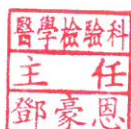 醫學檢驗科
主任
鄧豪恩